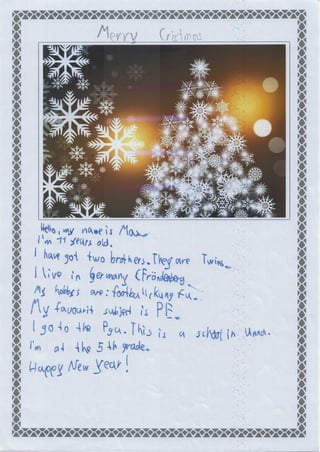 Merry Cristmas
Hello, my name is Max.
I'm 11 years old.
I have got two brothers. They are Twins.
I live in Germany (Fröndenberg.
My hobbys are: football, kung fu.
My favourit subject is PE.
I go to the Pgu. This is a school in Unna.
I'm at the 5th grade.
Happy New Year!